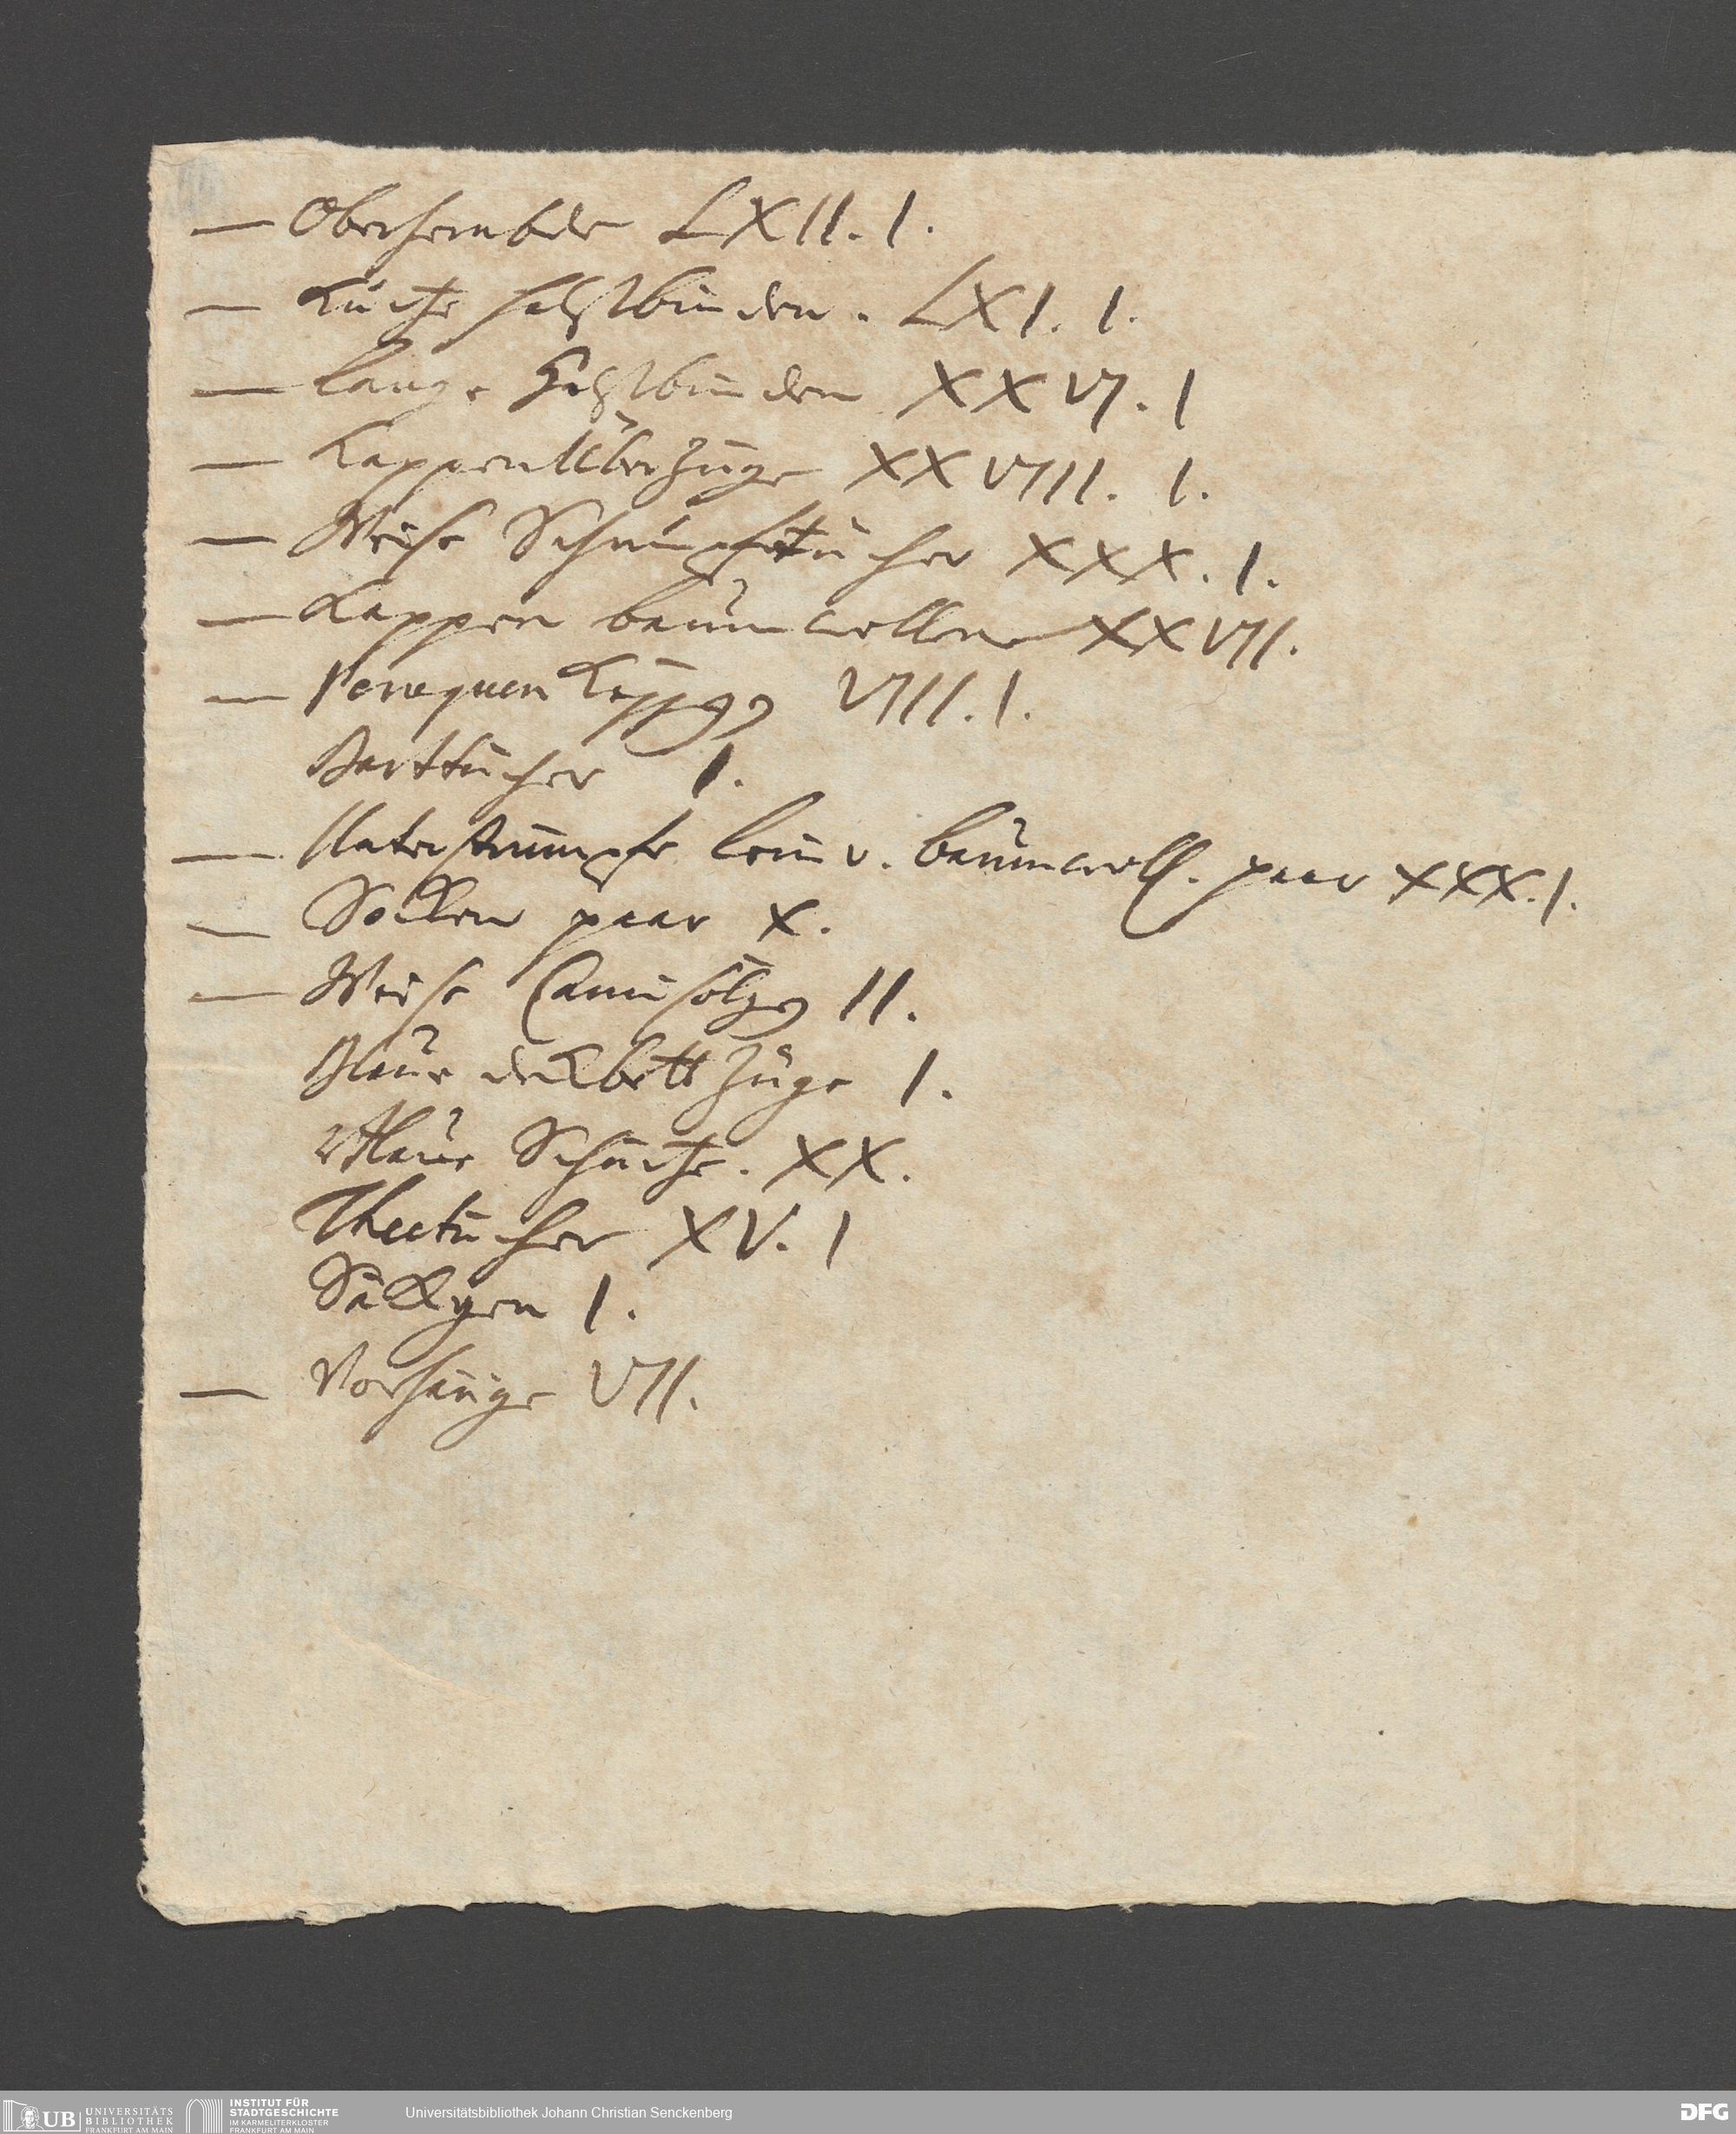 — Oberhembder LXII. I.
— Kurtze halßbinden. LXI. I.
— lange Halßbinden XXVI. I
— KappenUberzüge XXVIII. I.
— Weise Schnupftücher XXX. I.
— Kappen baumwollene XXVII.
— Perrequen VIII. I.
Barttücher I.
— Unterstrümpfe lein v. baumwoll. paar XXX. I.
— Socken paar X.
— Weise Camisölger II.
Blaue deckbett Züge I.
Blaue Schurtze. XX.
Theetücher XV. I
Säckgen I.
— Vorhänge VII.
UB UNIVERSITÄTS BIBLIOTHEK FRANKFURT AM MAIN
INSTITUT FÜR STADTGESCHICHTE IM KARMELITERKLOSTER FRANKFURT AM MAIN
Universitätsbibliothek Johann Christian Senckenberg
DFG